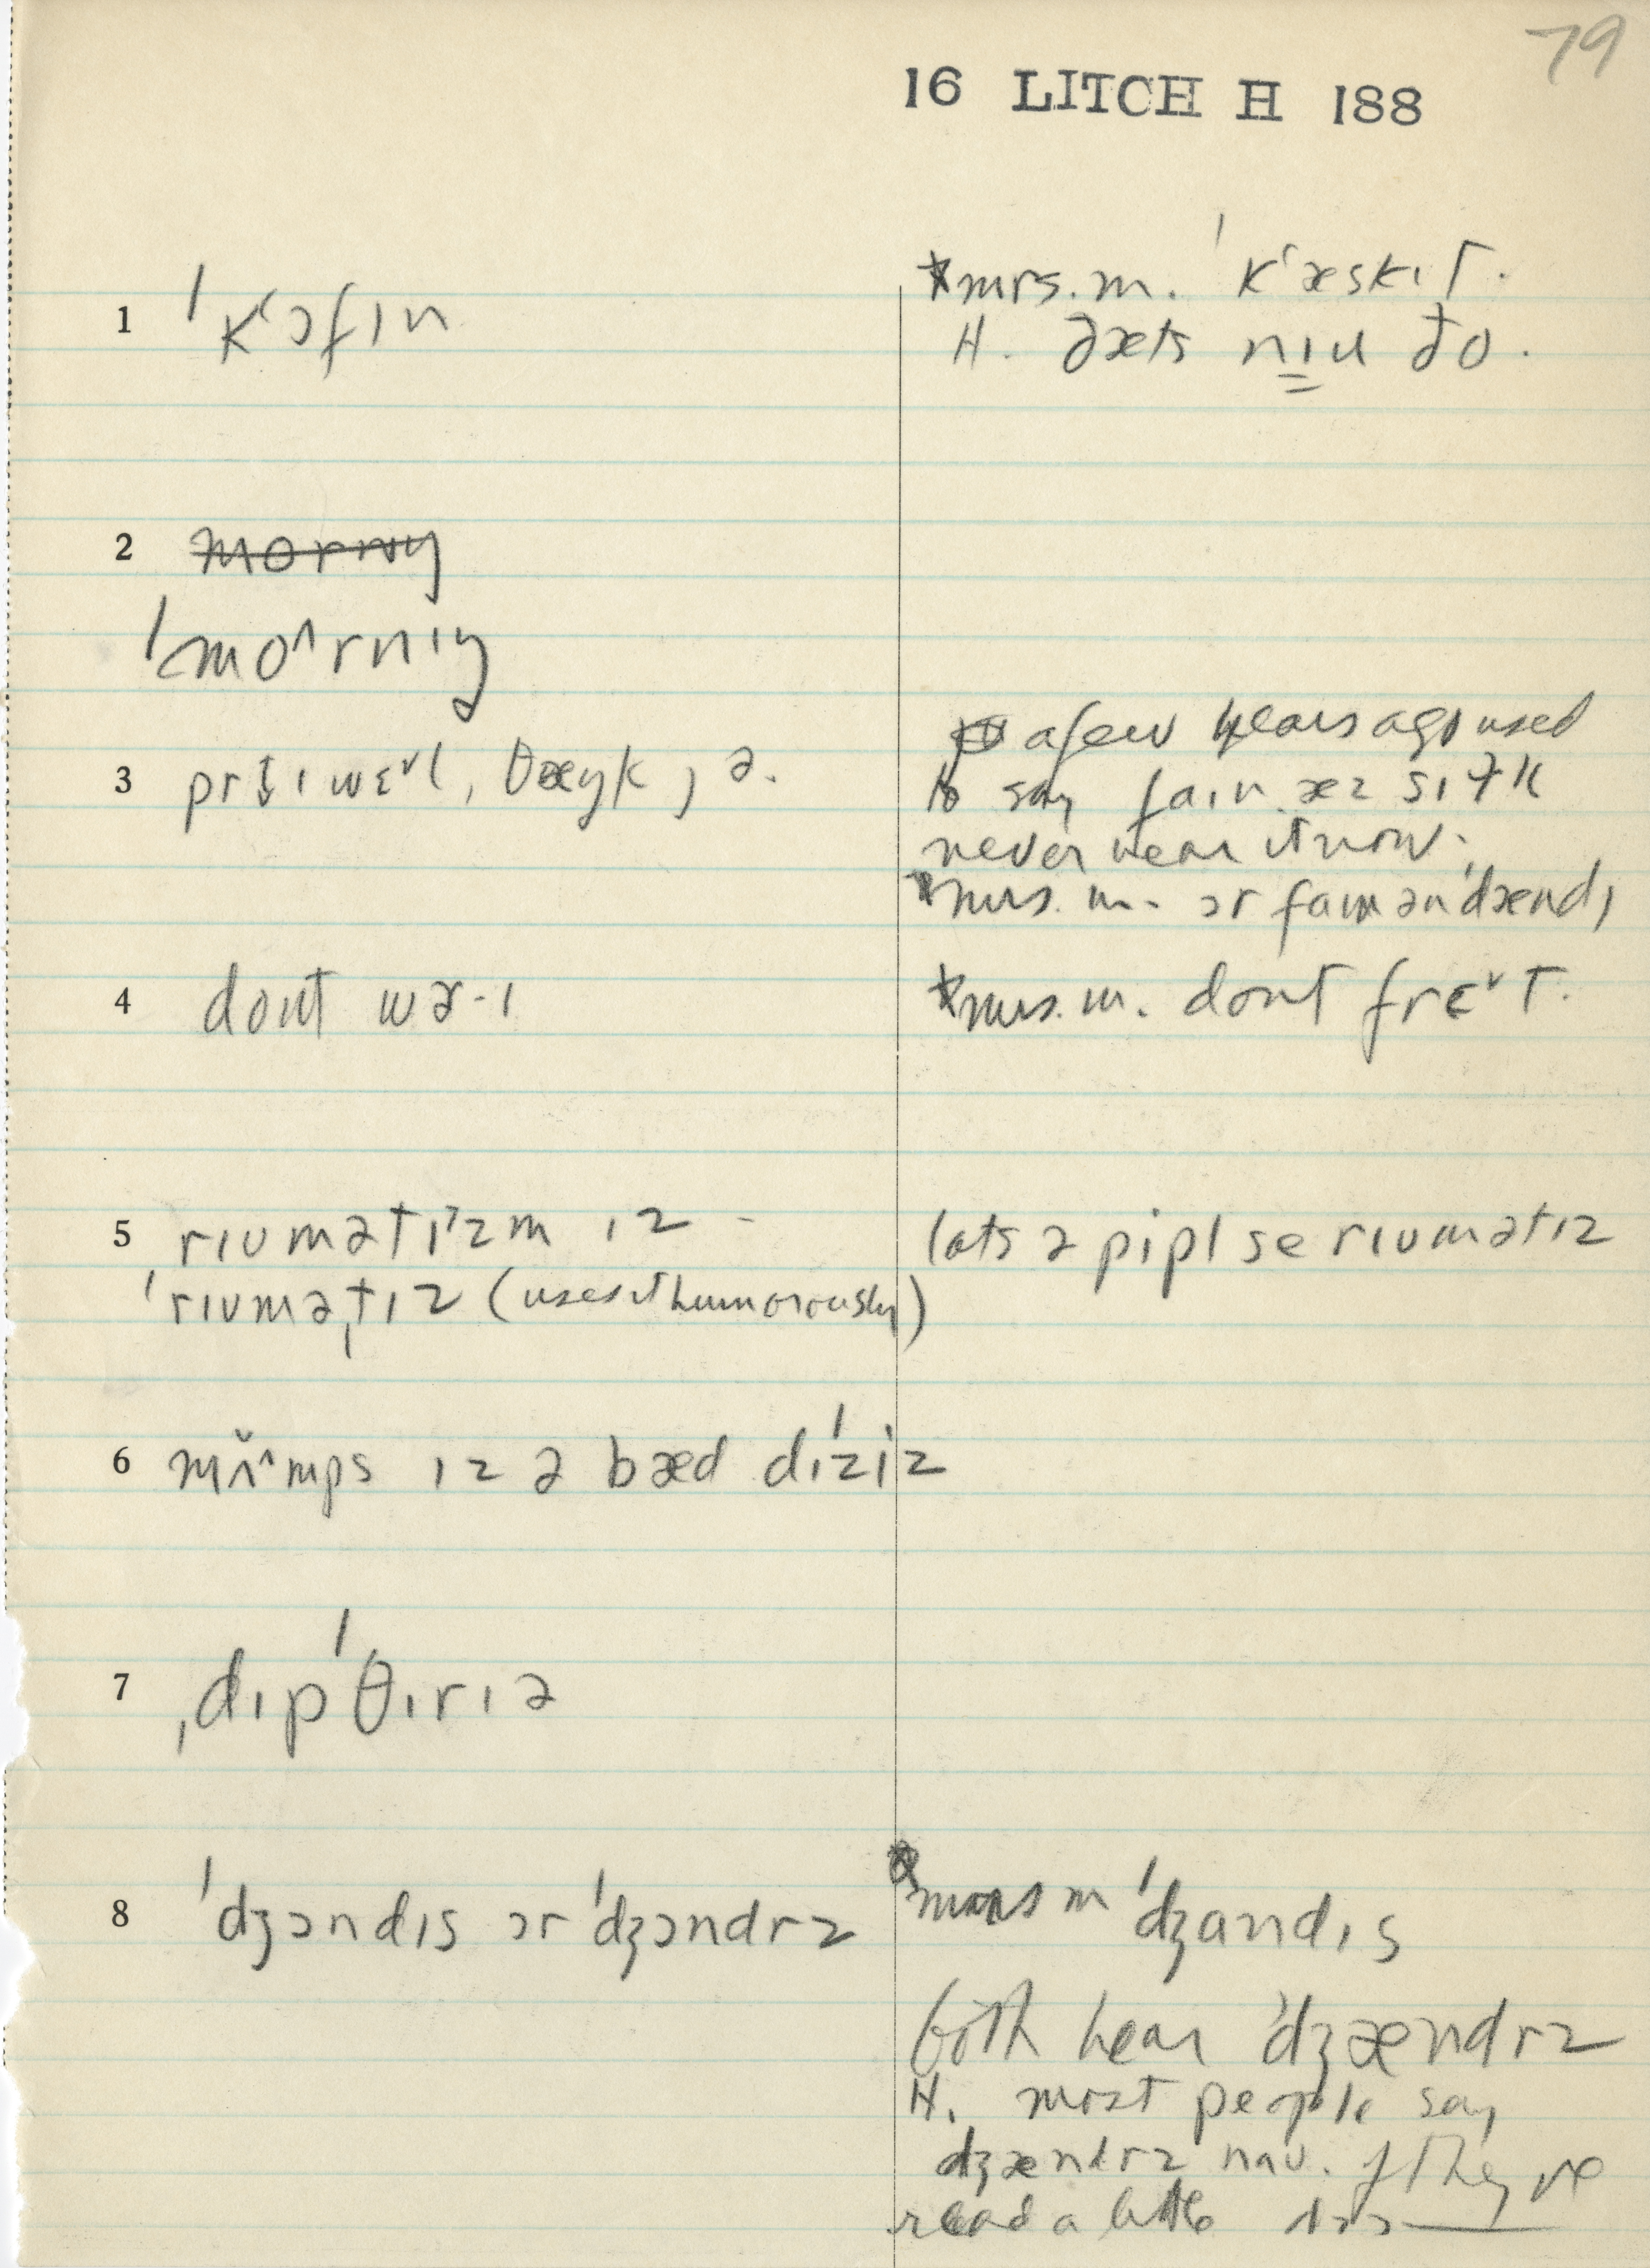 79
16 LITCH H 188
1 ˈkʻɔfɪn
*mrs. m. ˈkʻæskɪt.
H. ðæts nɪu ðo.
2 mornɪŋ
ˈmo^rnɪŋ
3 wɛ˅l, θæŋk, ə.
a few years ago used
to say faɪn æz sɪlk
never hear it now.
*mrs. m. ɔr faɪn ən ˈdændɪ
4 dont wɚ·ɪ
*mrs. m. dont frɛ˅t.
5 rɪumətɪzm ɪz -
ˈrɪuməˌtɪz (uses it humorously)
lots ə pipl se rɪumətɪz
6 mʌ̌^mps ɪz ə bæd dɪˈziz
7 ˌdɪpˈθɪrɪə
8 ˈdʒɔndɪs ɔr ˈdʒɔndrz
*mrs m ˈdʒandɪs
both hear ˈdʒændrz
H. most people say
dʒændrz nau. if they ve
read a little